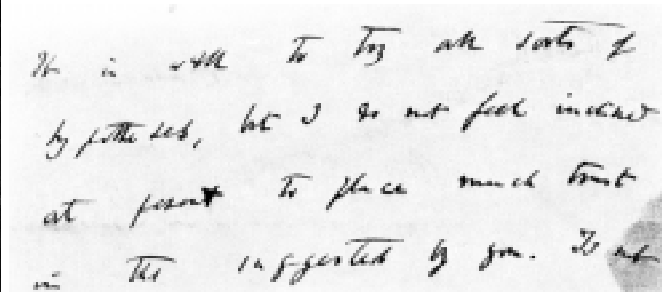 It is well to try all sorts of
hypotheses, but I do not feel inclined
at present to place much trust
in the suggested by you. Is not